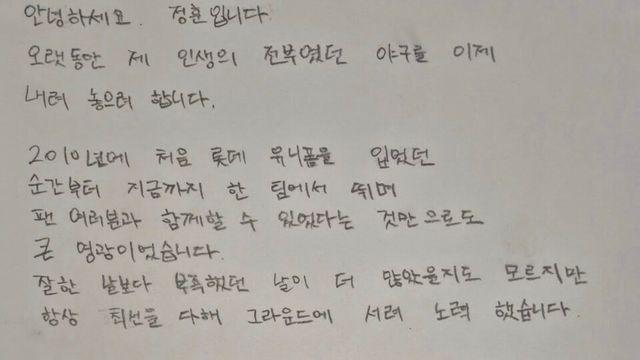 안녕하세요. 정훈입니다.
오랫동안 제 인생의 전부였던 야구를 이제
내려 놓으려 합니다.
2010년에 처음 롯데 유니폼을 입었던
순간부터 지금까지 한 팀에서 뛰며
팬 여러분과 함께할 수 있었다는 것만으로도
큰 영광이었습니다.
잘한 날보다 부족했던 날이 더 많았을지도 모르지만
항상 최선을 다해 그라운드에 서려 노력 했습니다.